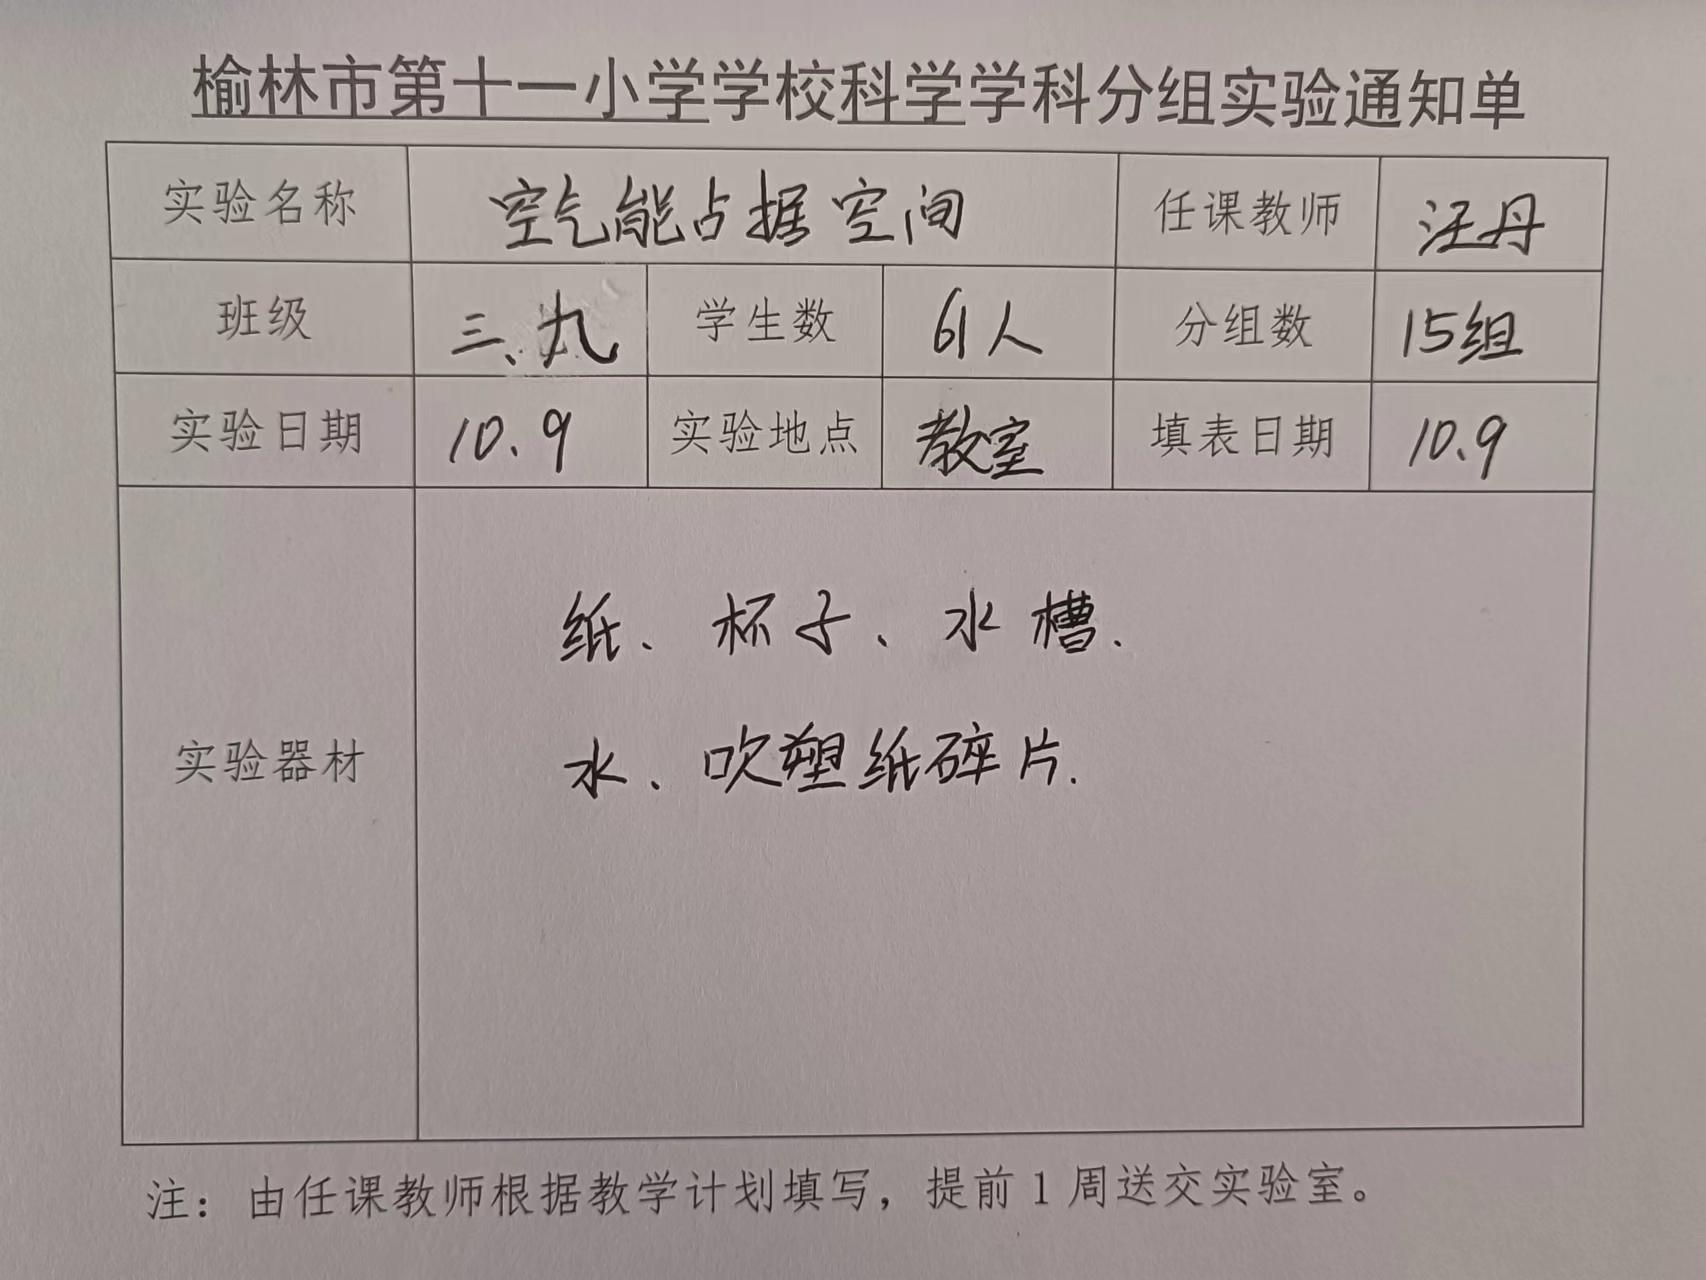 榆林市第十一小学学校科学学科分组实验通知单
实验名称 空气能占据空间 任课教师 汪丹
班级 三、九 学生数 61人 分组数 15组
实验日期 10.9 实验地点 教室 填表日期 10.9
纸、杯子、水槽.
实验器材
水、吹塑纸碎片.
注：由任课教师根据教学计划填写，提前1周送交实验室。